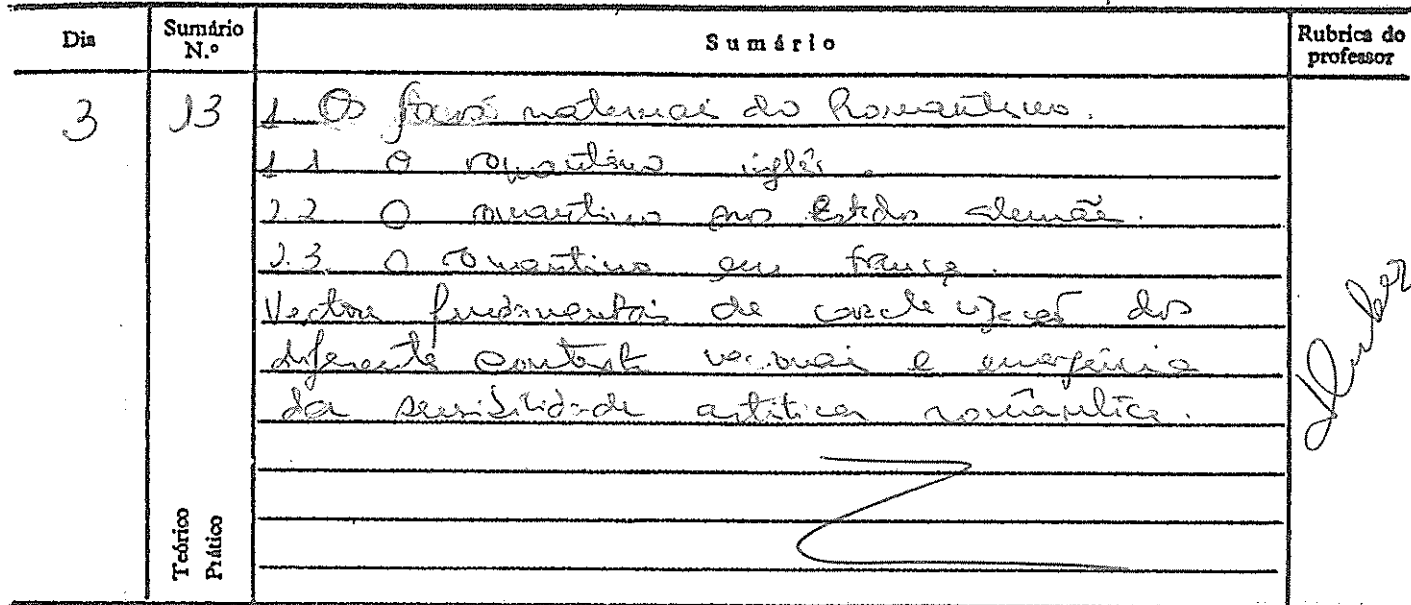 Dia
Sumário N.º
Sumário
Rubrica do professor
3
13
1. Os do Romantismo.
1.1 O romantismo inglês.
1.2 O romantismo nos Estados alemães.
1.3. O romantismo em França.
Vectores fundamentais de caracterização dos
diferentes contextos nacionais e emergência
da sensibilidade artística romântica.
Teórico
Prático